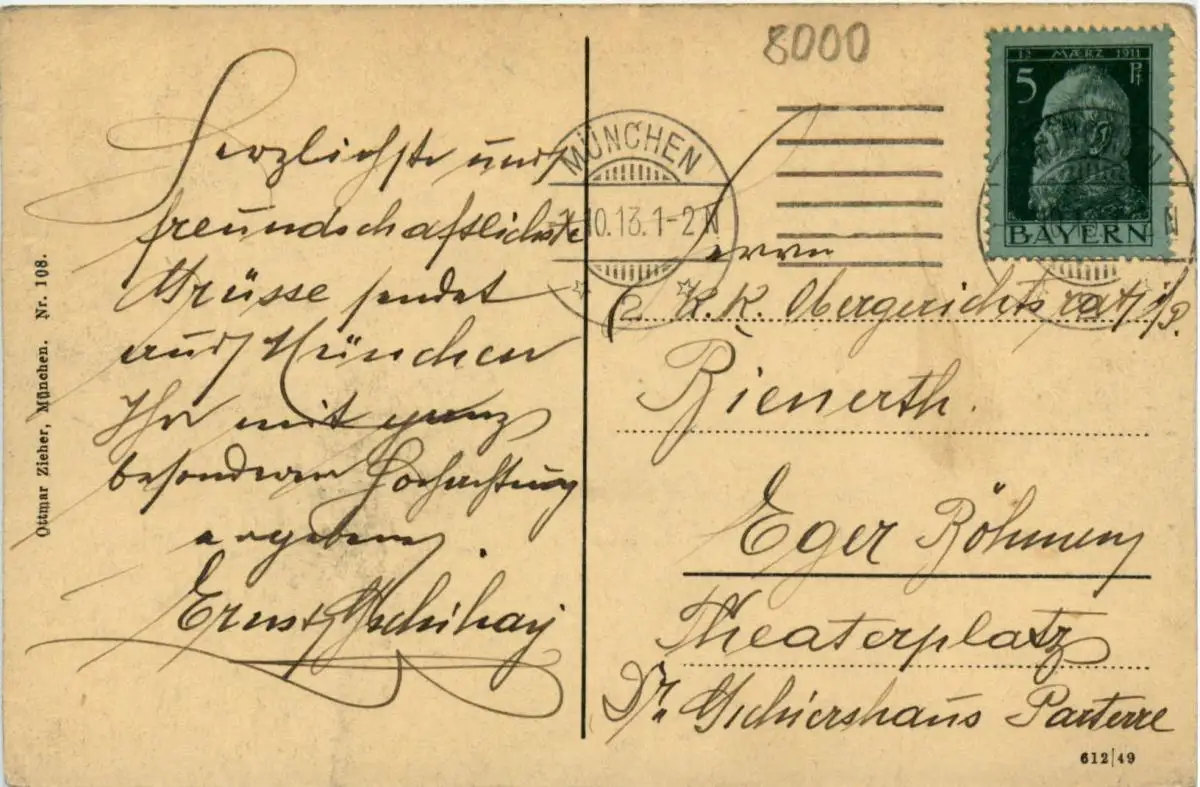 8000
12 MÆRZ 1911
5 Pf
BAYERN
MÜNCHEN
10.13.1-2N
2
Herzlichste und
freundschaftlichste
Grüsse sendet
aus München
Ihr mit ganz
besonderer Hochachtung
ergebener
Ernst
Herrn
k.k. Obergerichtsrat i/P.
Bienerth.
Eger Böhmen
Theaterplatz
Dr. Gschiershaus Parterre
Ottmar Zieher, München. Nr. 108.
612/49